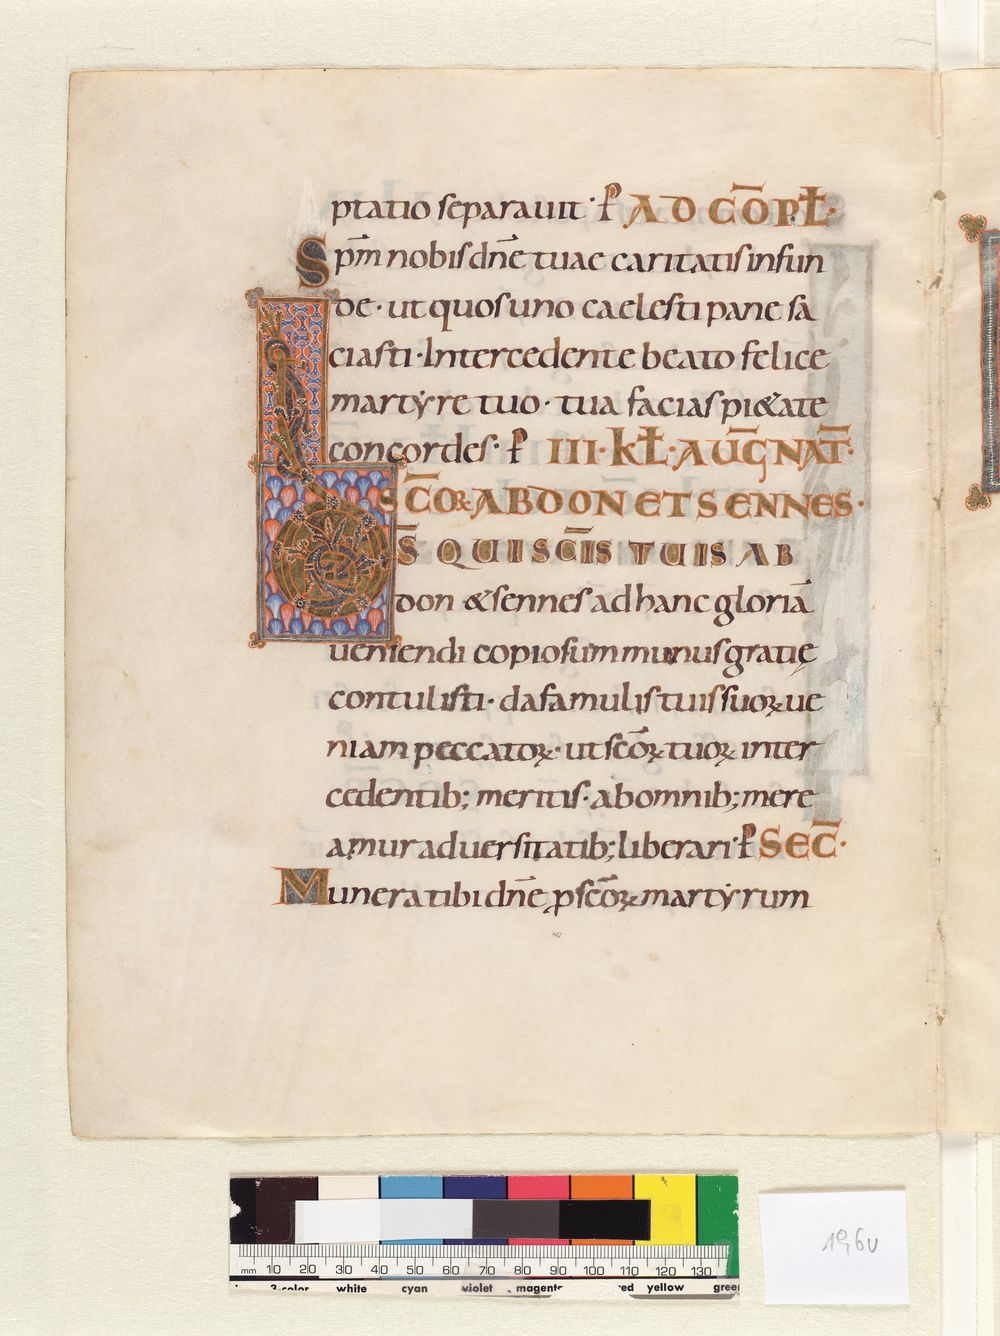 ptatio separauit· ꝑ AD CŌPŁ·
Spm̄ nobis dn̄e tuae caritatis infun
de· ut quos uno caelesti pane sa
ciasti· Intercedente beato felice
martẏre tuo· tua facias pi&ate
concordes· ꝑ III· KŁ· AUḠ NAT̄·
SC̄OꝝABDON ET SENNES·
D̄S QUI SC̄IS TUIS AB
don & sennes ad hanc gloriā
ueniendi copiosum munus gratię
contulisti· da famulis tuis suoꝝ ue
niam peccatoꝝ· ut sc̄oꝝ tuoꝝ inter
cedentib; meritis· ab omnib; mere
amur aduersitatib; liberari· ꝑ SEC̄·
Munera tibi dn̄e ꝓ sc̄oꝝ martẏrum
mm 10 20 30 40 50 60 70 80 90 100 110 120 130
3-color white cyan violet magenta red yellow green
196v